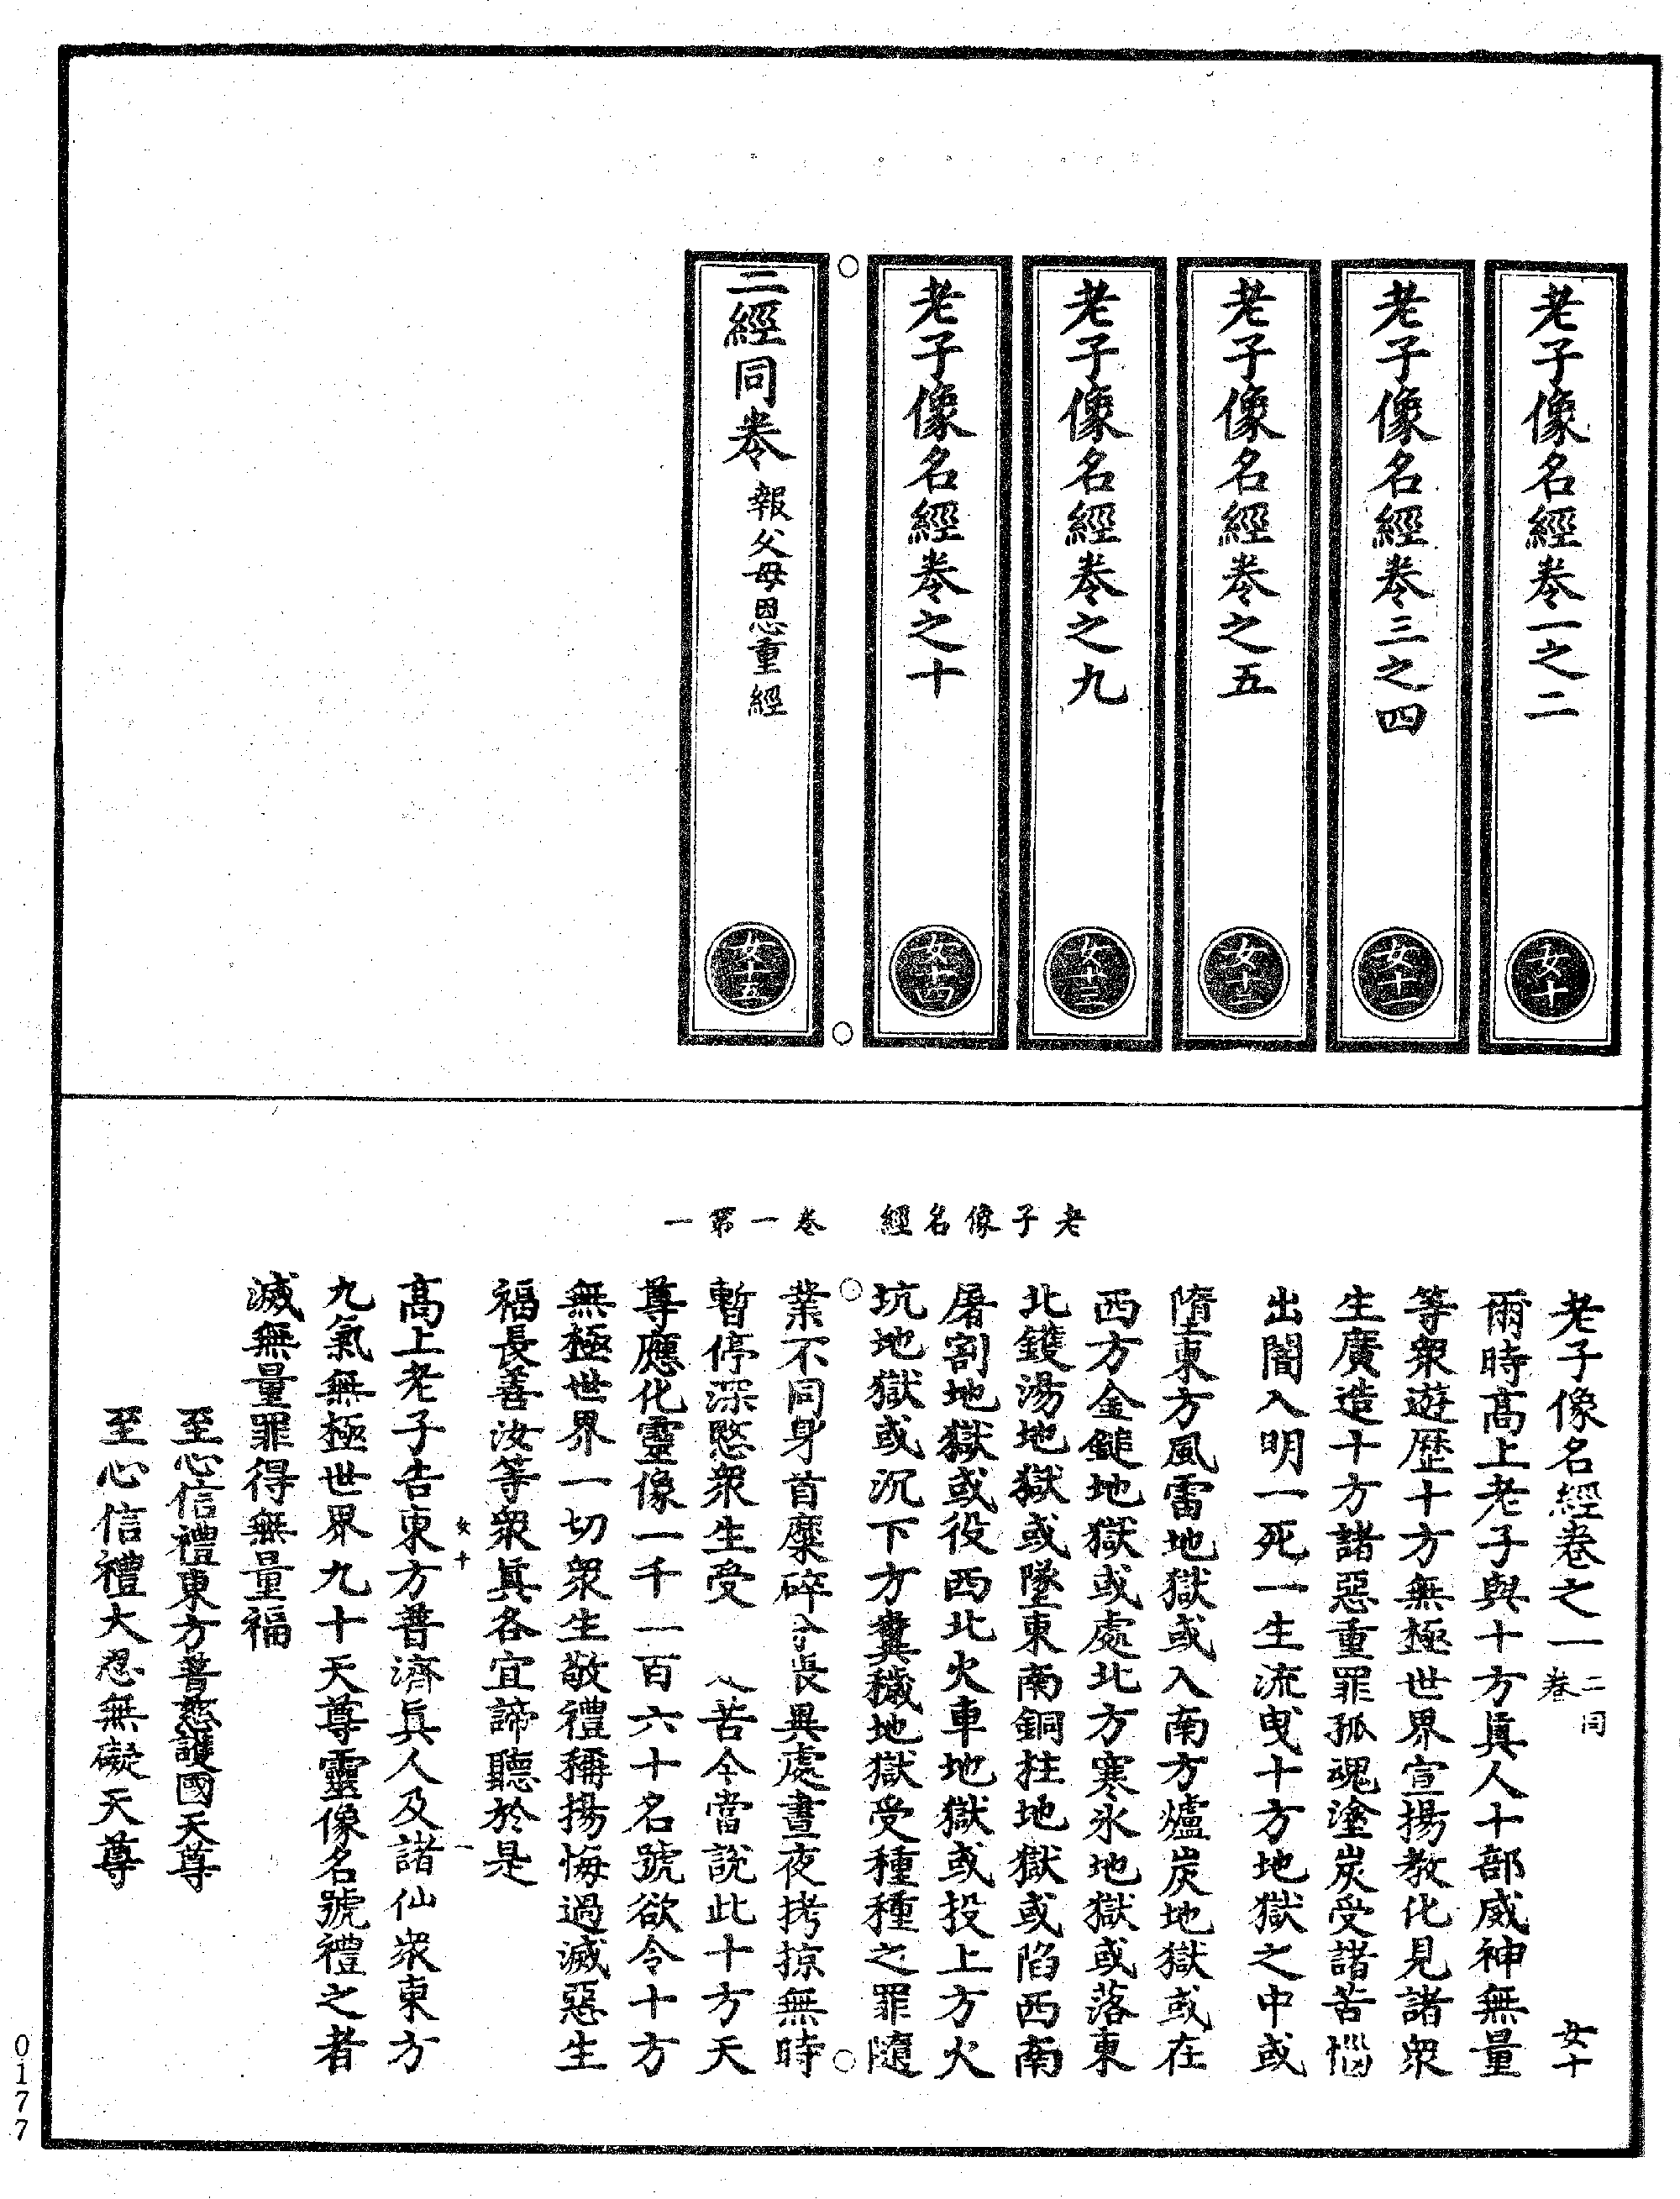 老子像名經卷一之二
女十
老子像名經卷三之四
女十一
老子像名經卷之五
女十二
老子像名經卷之九
女十三
老子像名經卷之十
女十四
二經同卷 報父母恩重經
女十五
老子像名經 卷一第一
老子像名經卷之一 二同卷 女十
爾時高上老子與十方眞人十部威神無量
等衆遊歷十方無極世界宣揚教化見諸衆
生廣造十方諸惡重罪孤魂塗炭受諸苦惱
出闇入明一死一生流曳十方地獄之中或
隋東方風雷地獄或入南方爐炭地獄或在
西方金鎚地獄或處北方寒氷地獄或落東
北鑊湯地獄或墜東南銅柱地獄或陷西南
屠割地獄或役西北火車地獄或投上方火
坑地獄或沉下方糞穢地獄受種種之罪隨
業不同身首糜碎異處晝夜拷掠無時
暫停深愍衆生受苦今當說此十方天
尊應化靈像一千一百六十名號欲令十方
無極世界一切衆生敬禮稱揚悔過滅惡生
福長善汝等衆眞各宜諦聽於是
女十 一
高上老子告東方普濟眞人及諸仙衆東方
九氣無極世界九十天尊靈像名號禮之者
滅無量罪得無量福
至心信禮東方普慈護國天尊
至心信禮大忍無礙天尊
0177